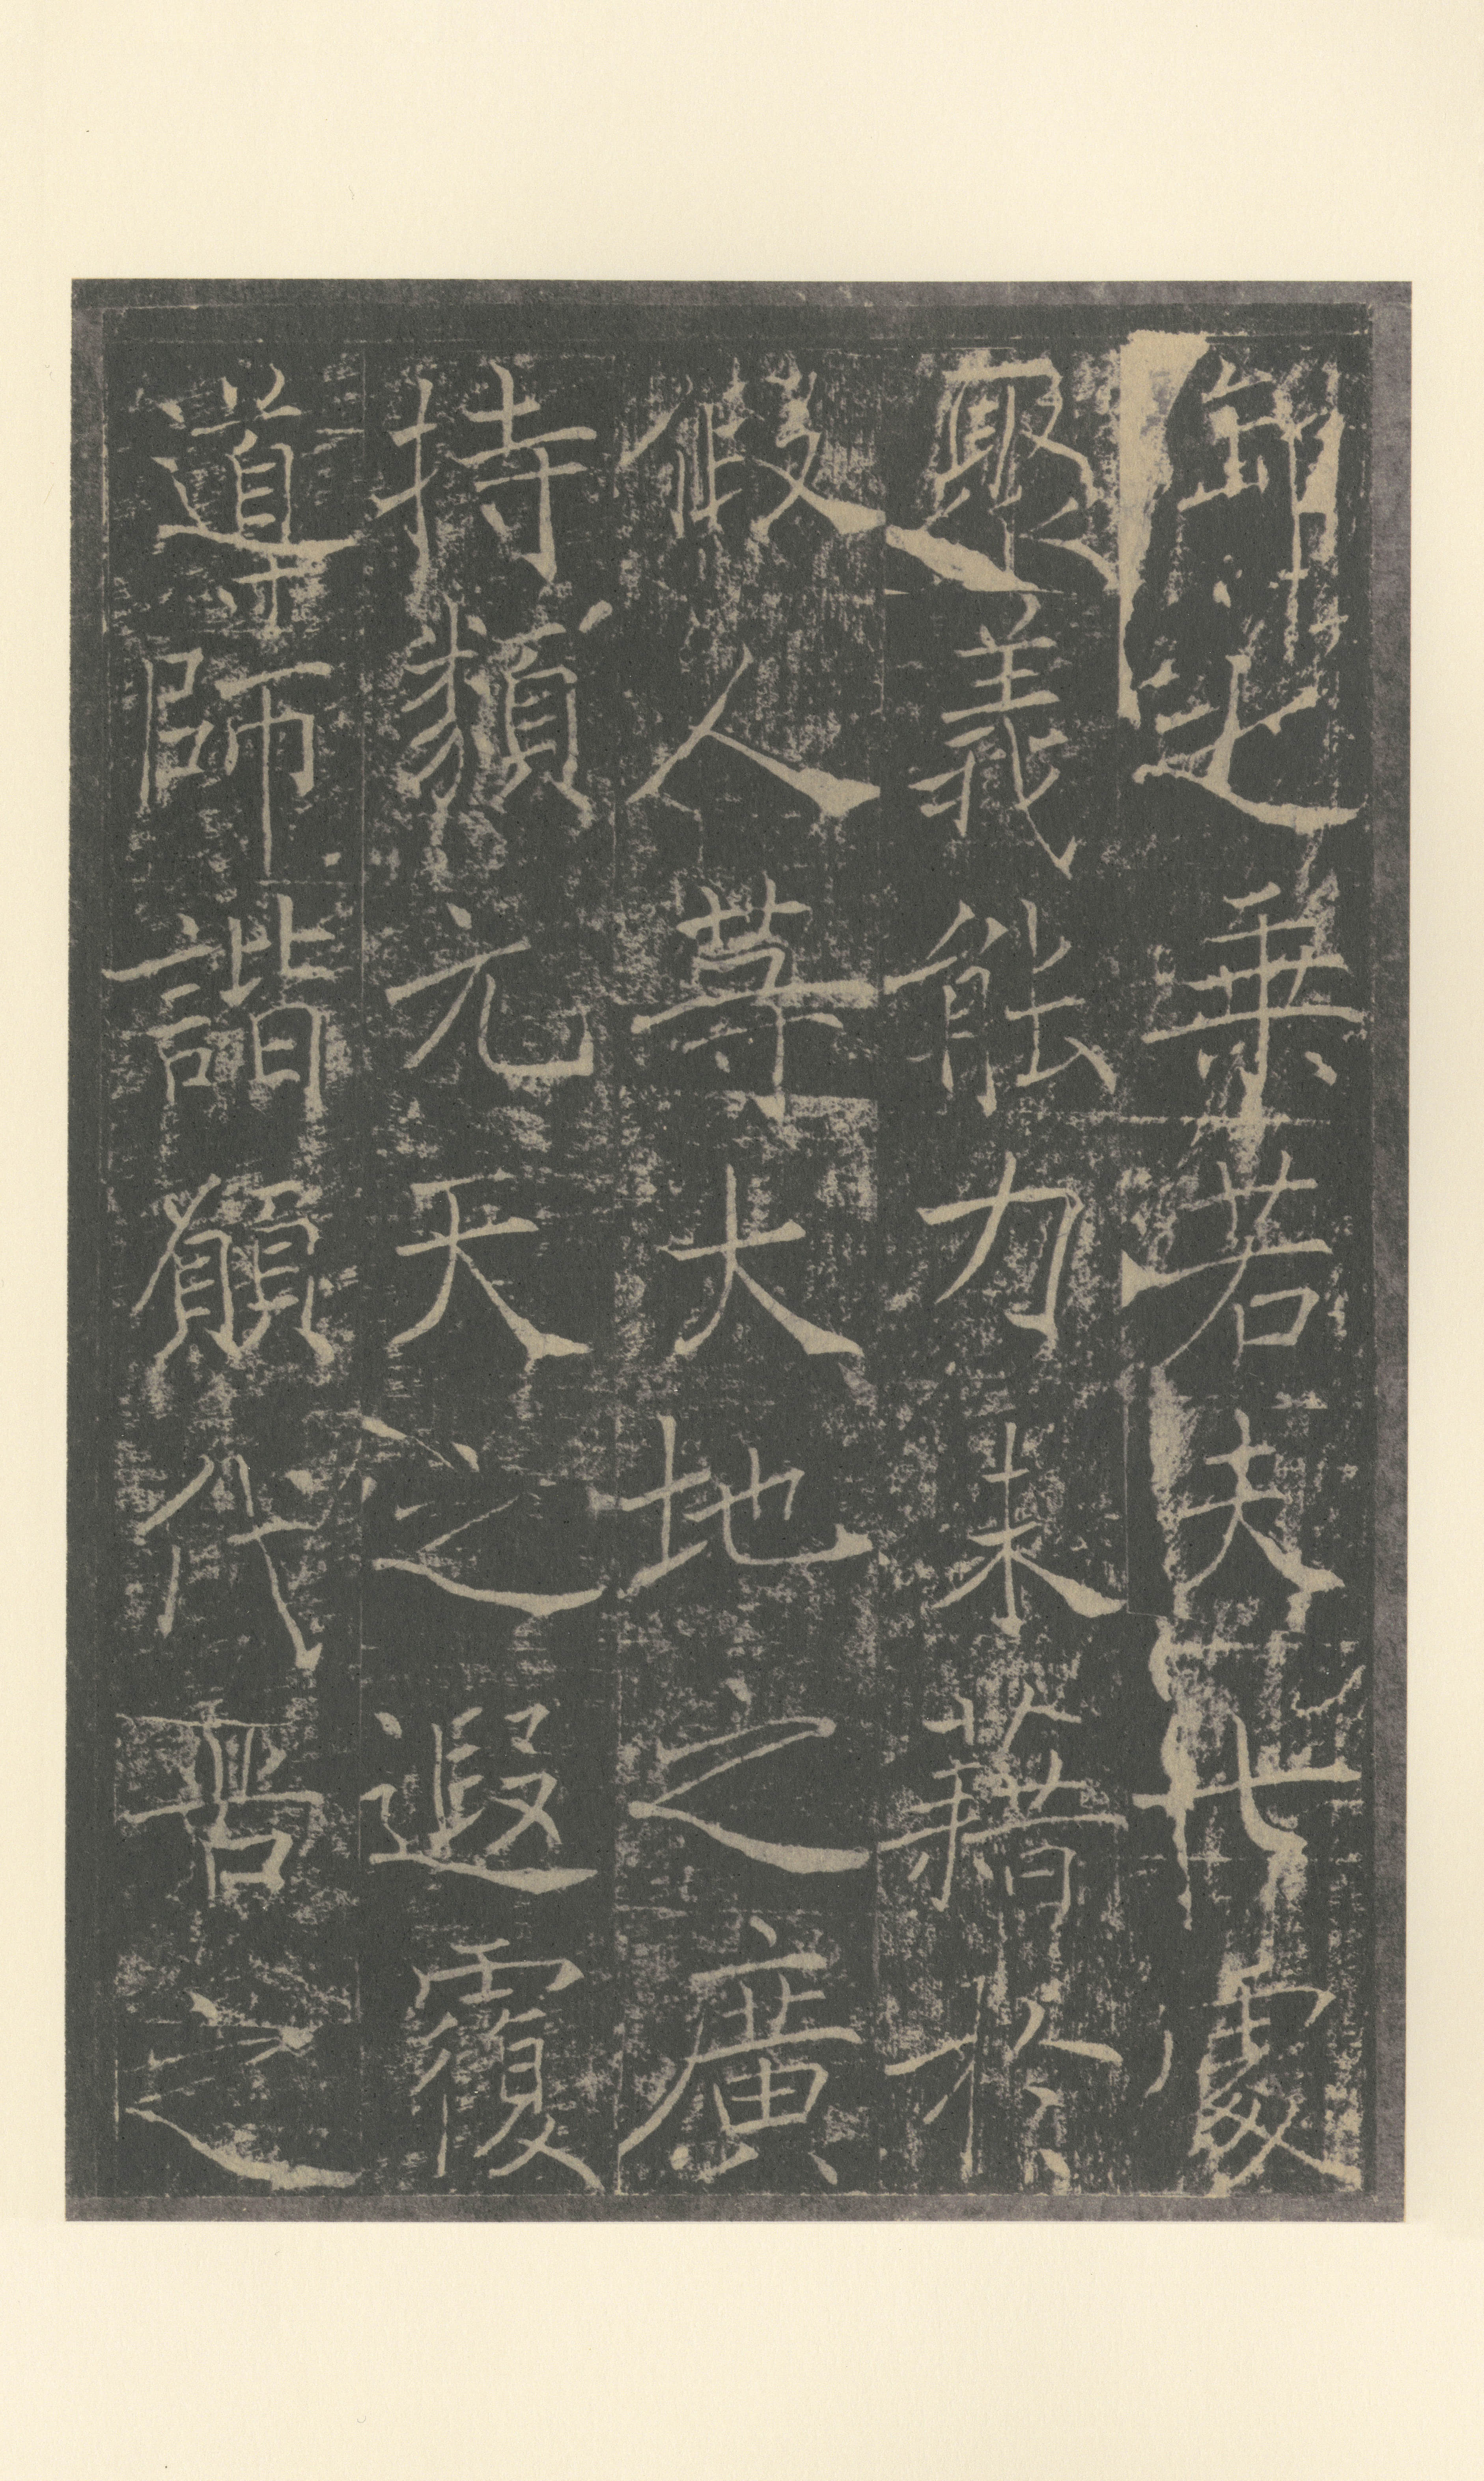 乘若夫處
聚義能力未藉於
假人等大地之廣
持類元天之遐覆
導師諧願代之